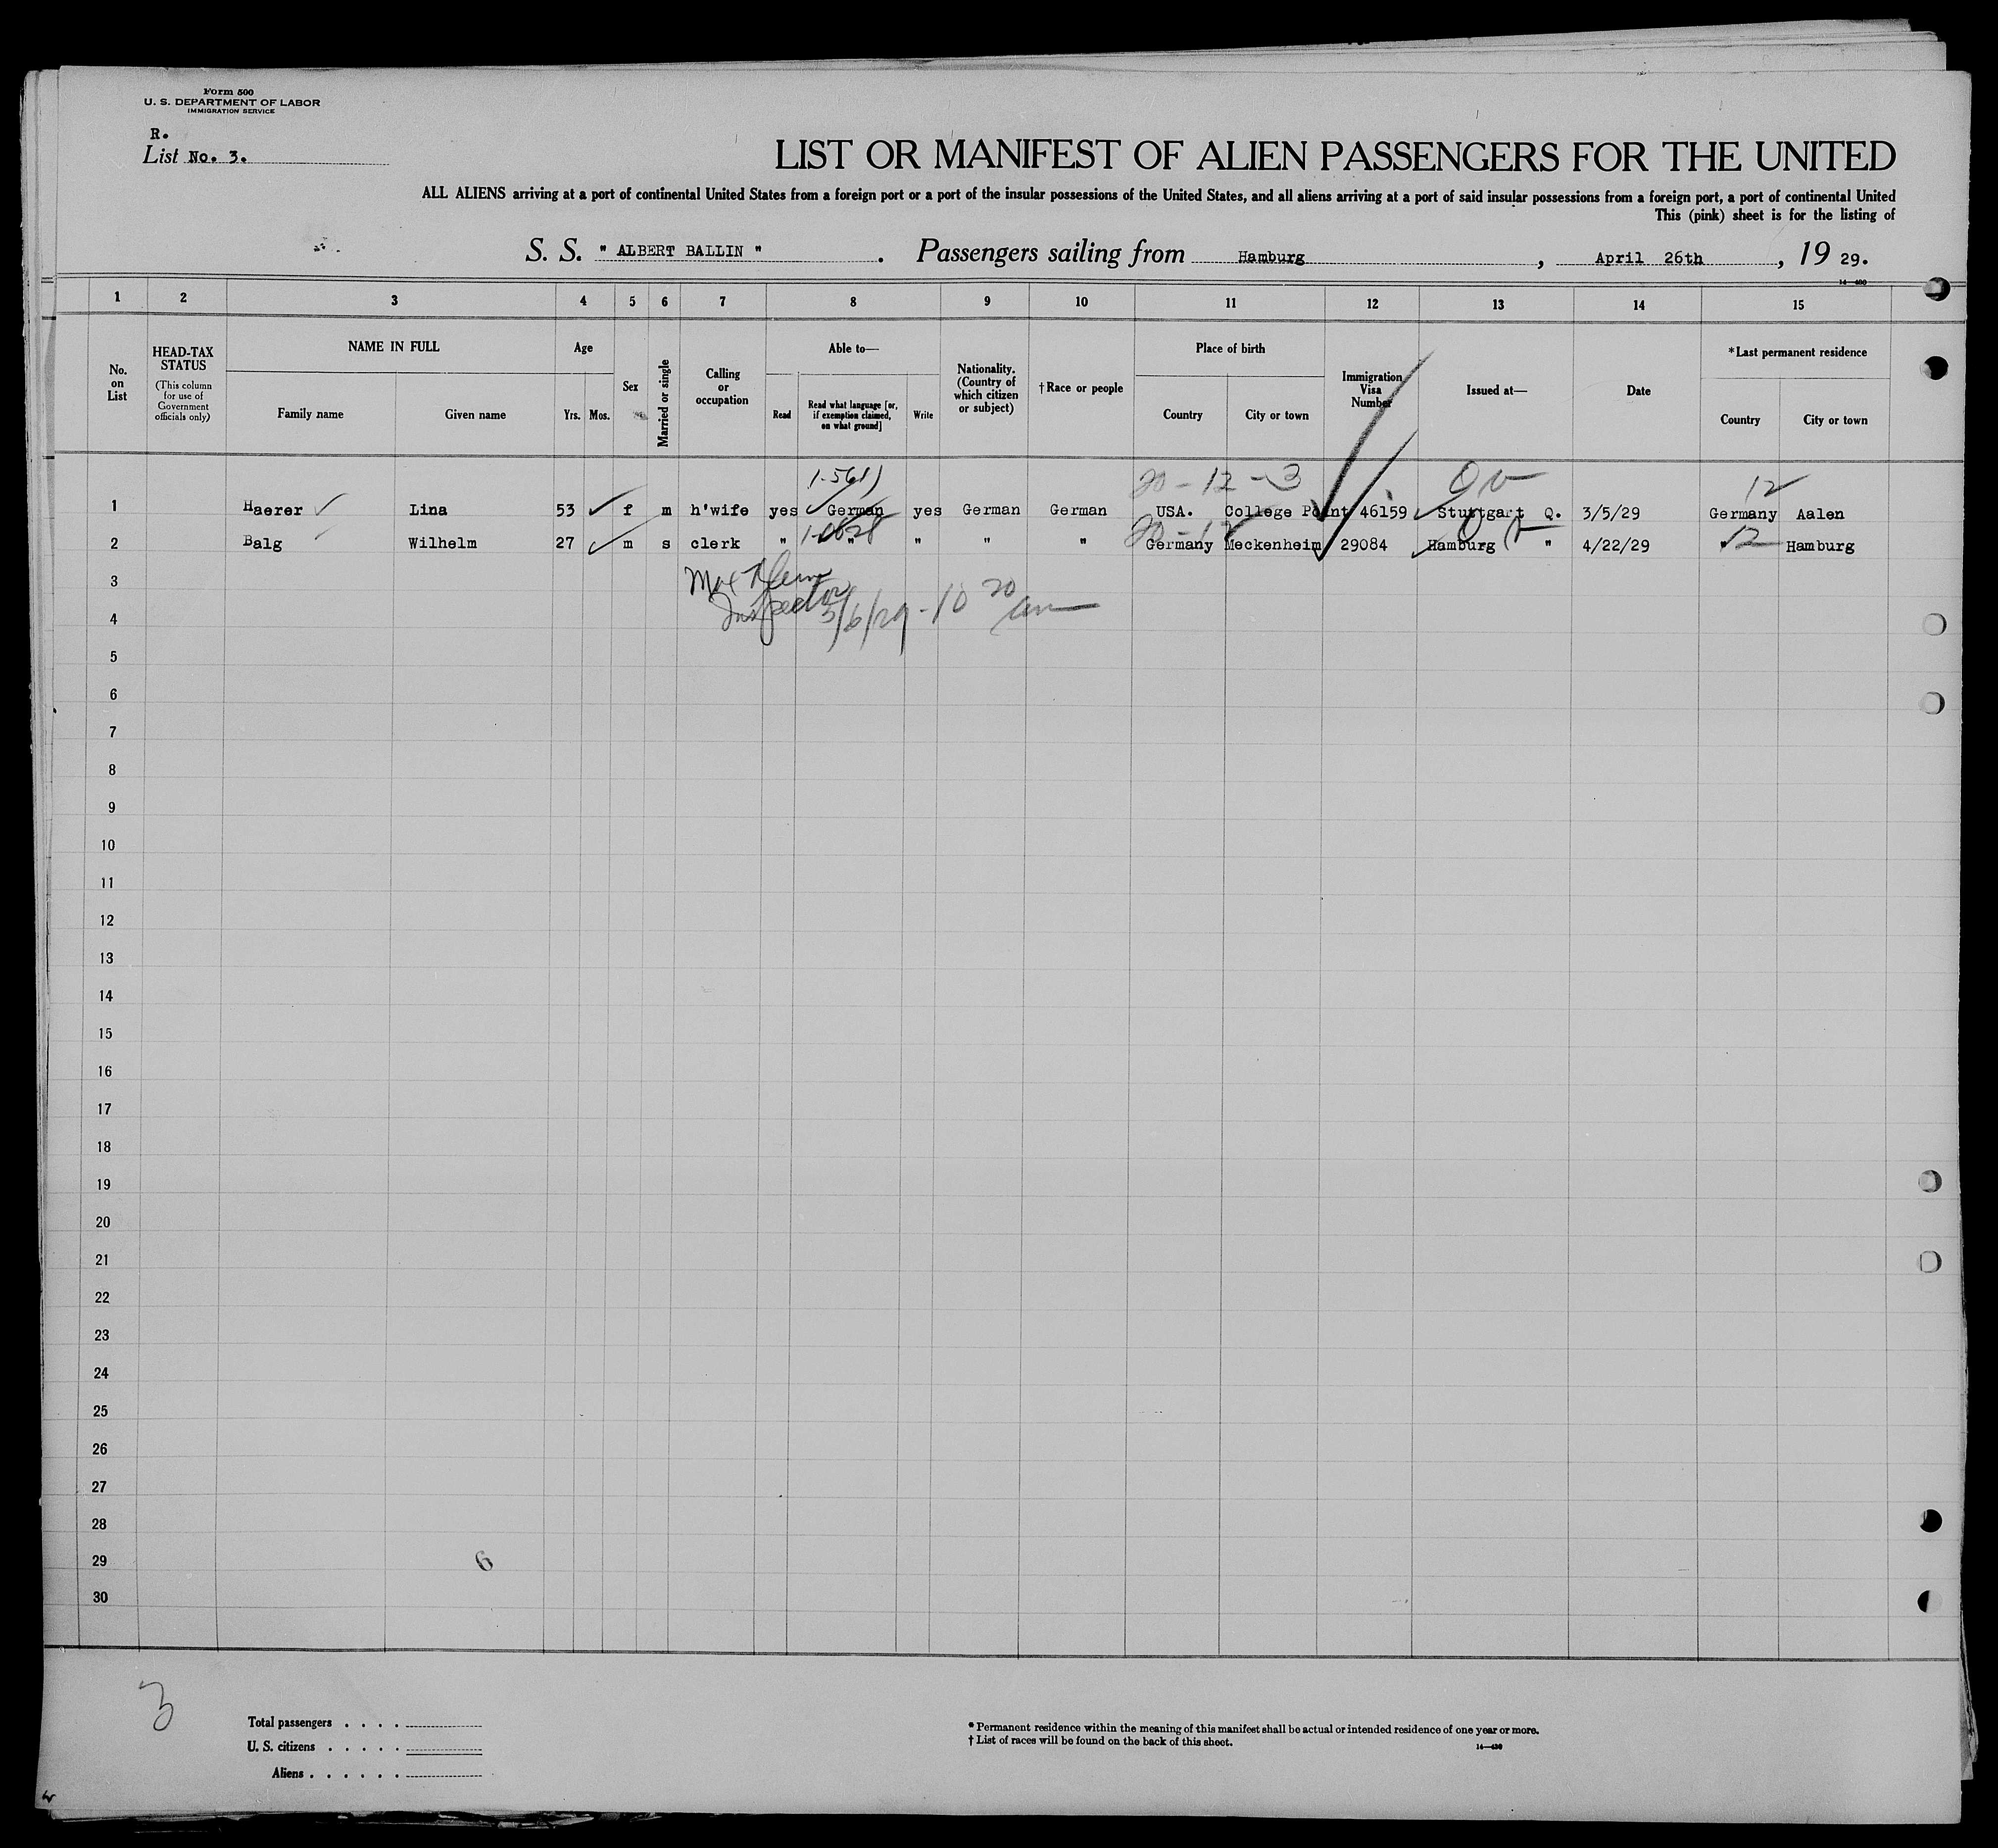 Form 500
U. S. DEPARTMENT OF LABOR
IMMIGRATION SERVICE
R.
List No. 3.
LIST OR MANIFEST OF ALIEN PASSENGERS FOR THE UNITED
ALL ALIENS arriving at a port of continental United States from a foreign port or a port of the insular possessions of the United States, and all aliens arriving at a port of said insular possessions from a foreign port, a port of continental United
This (pink) sheet is for the listing of
S. S. " ALBERT BALLIN " . Passengers sailing from Hamburg , April 26th , 19 29.
1 2 3 4 5 6 7 8 9 10 11 12 13 14 15
No. on List
HEAD-TAX STATUS (This column for use of Government officials only)
NAME IN FULL
Family name Given name
Age
Yrs. Mos.
Sex
Married or single
Calling or occupation
Able to—
Read Read what language [or, if exemption claimed, on what ground] Write
Nationality. (Country of which citizen or subject)
†Race or people
Place of birth
Country City or town
Immigration Visa Number
Issued at—
Date
*Last permanent residence
Country City or town
20-12-3 12
1 Haerer Lina 53 f m h'wife yes German yes German German USA. College Point 46159 Stuttgart Q. 3/5/29 Germany Aalen
20-12
2 Balg Wilhelm 27 m s clerk " " " " " Germany Meckenheim 29084 Hamburg " 4/22/29 " 12 Hamburg
3 Max
4 Inspector 5/6/29 - 10 20 am
5
6
7
8
9
10
11
12
13
14
15
16
17
18
19
20
21
22
23
24
25
26
27
28
29 6
30
3
Total passengers . . . .
U. S. citizens . . . . .
Aliens . . . . . .
* Permanent residence within the meaning of this manifest shall be actual or intended residence of one year or more.
† List of races will be found on the back of this sheet.